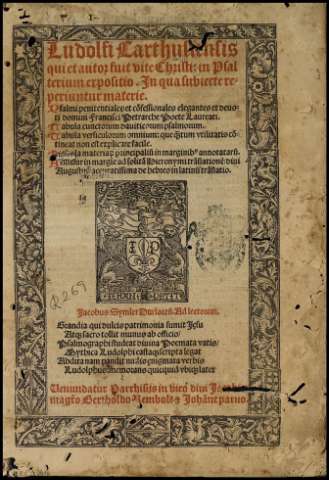 Ludolfi Carthusiensis
qui et autor fuit vite Christi: in Psal
terium expositio. In qua subiecte re
periuntur materie.
Psalmi penitentiales et cōfessionales elegantes et deuo
ti domini Francisci Petrarche Poete Laureati.
Tabula cunctorum dauiticorum psalmorum.
Tabula versiculorum omnium: que
tineat non est explicare facile.
materiarū principaliū in marginibꝰ annotatarū.
in margīe ad Hieronymi trāslationē diui
accuratissima de hebreo in latinū trāslatio.
I P
R 269
Jacobus Symler Ad lectorem.
Scandia qui dulcis patrimonia sumit Jesu
Atqꝫ sacro tollit munus ab officio
Psalmographi studeat diuina Poemata vatis
Mythica Ludolphi castaqꝫ scripta legat
Abdita nam pandit enigmata verbis
Ludolphus quicquid vbiqꝫ latet
Venundatur Parrhisijs in vico diui Jacobi
magrō Bertholdo Rembolt et Johāne paruo.